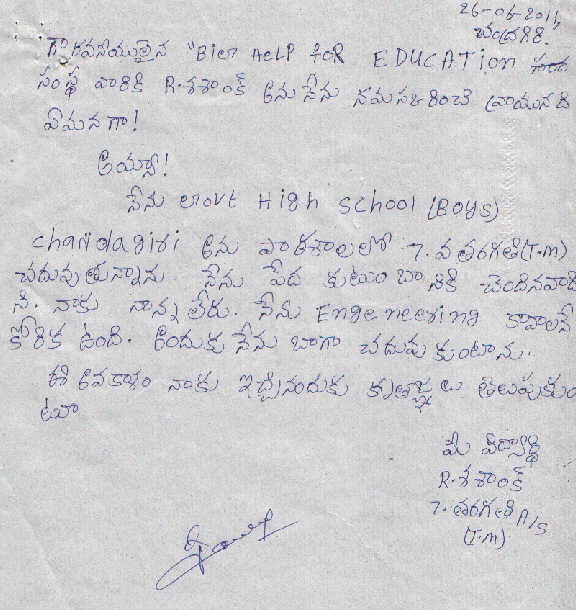 26-06-2014
చంద్రగిరి.
గౌరవనీయులైన "Bien HELP FOR EDUCATION
సంస్థ వారికి R.శశాంక్ అను నేను నమస్కరించి వ్రాయునది
ఏమనగా!
అయ్యా!
నేను Govt High School (Boys)
chandragiri అను పాఠశాలలో 7.వ తరగతి (T.M)
చదువుతున్నాను. నేను పేద కుటుంబానికి చెందినవాడి
ని. నాకు నాన్న లేరు. నేను Engeneering కావాలనే
కోరిక ఉంది. అందుకు నేను బాగా చదువుకుంటాను.
ఈ అవకాశం నాకు ఇచ్చినందుకు కృతజ్ఞతలు తెలుపుకుం
టూ
మీ విద్యార్థి
R.శశాంక్
7. తరగతి A/s
(T.M)